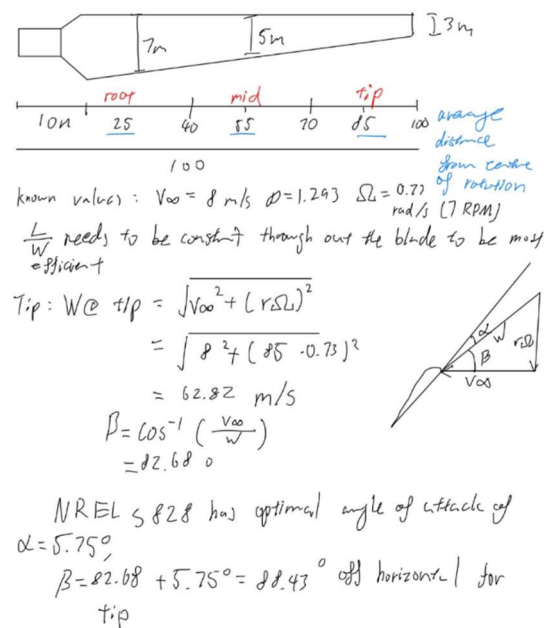 3m
7m
5m
root mid tip
10m 25 40 55 70 85 100
average
distance
from centre
of rotation
100
known values : V∞ = 8 m/s ρ=1.293 Ω = 0.73
rad/s (7 RPM)
L/W needs to be constant through out the blade to be most
efficient
Tip : W@ tip = √(V∞² + (rΩ)²)
= √(8² + (85 · 0.73)²)
= 62.82 m/s
β = cos⁻¹ (V∞/W)
= 82.68 °
α
W
β
rΩ
V∞
NREL S828 has optimal angle of attack of
α = 5.75°,
β = 82.68 + 5.75° = 88.43° off horizontal for
tip